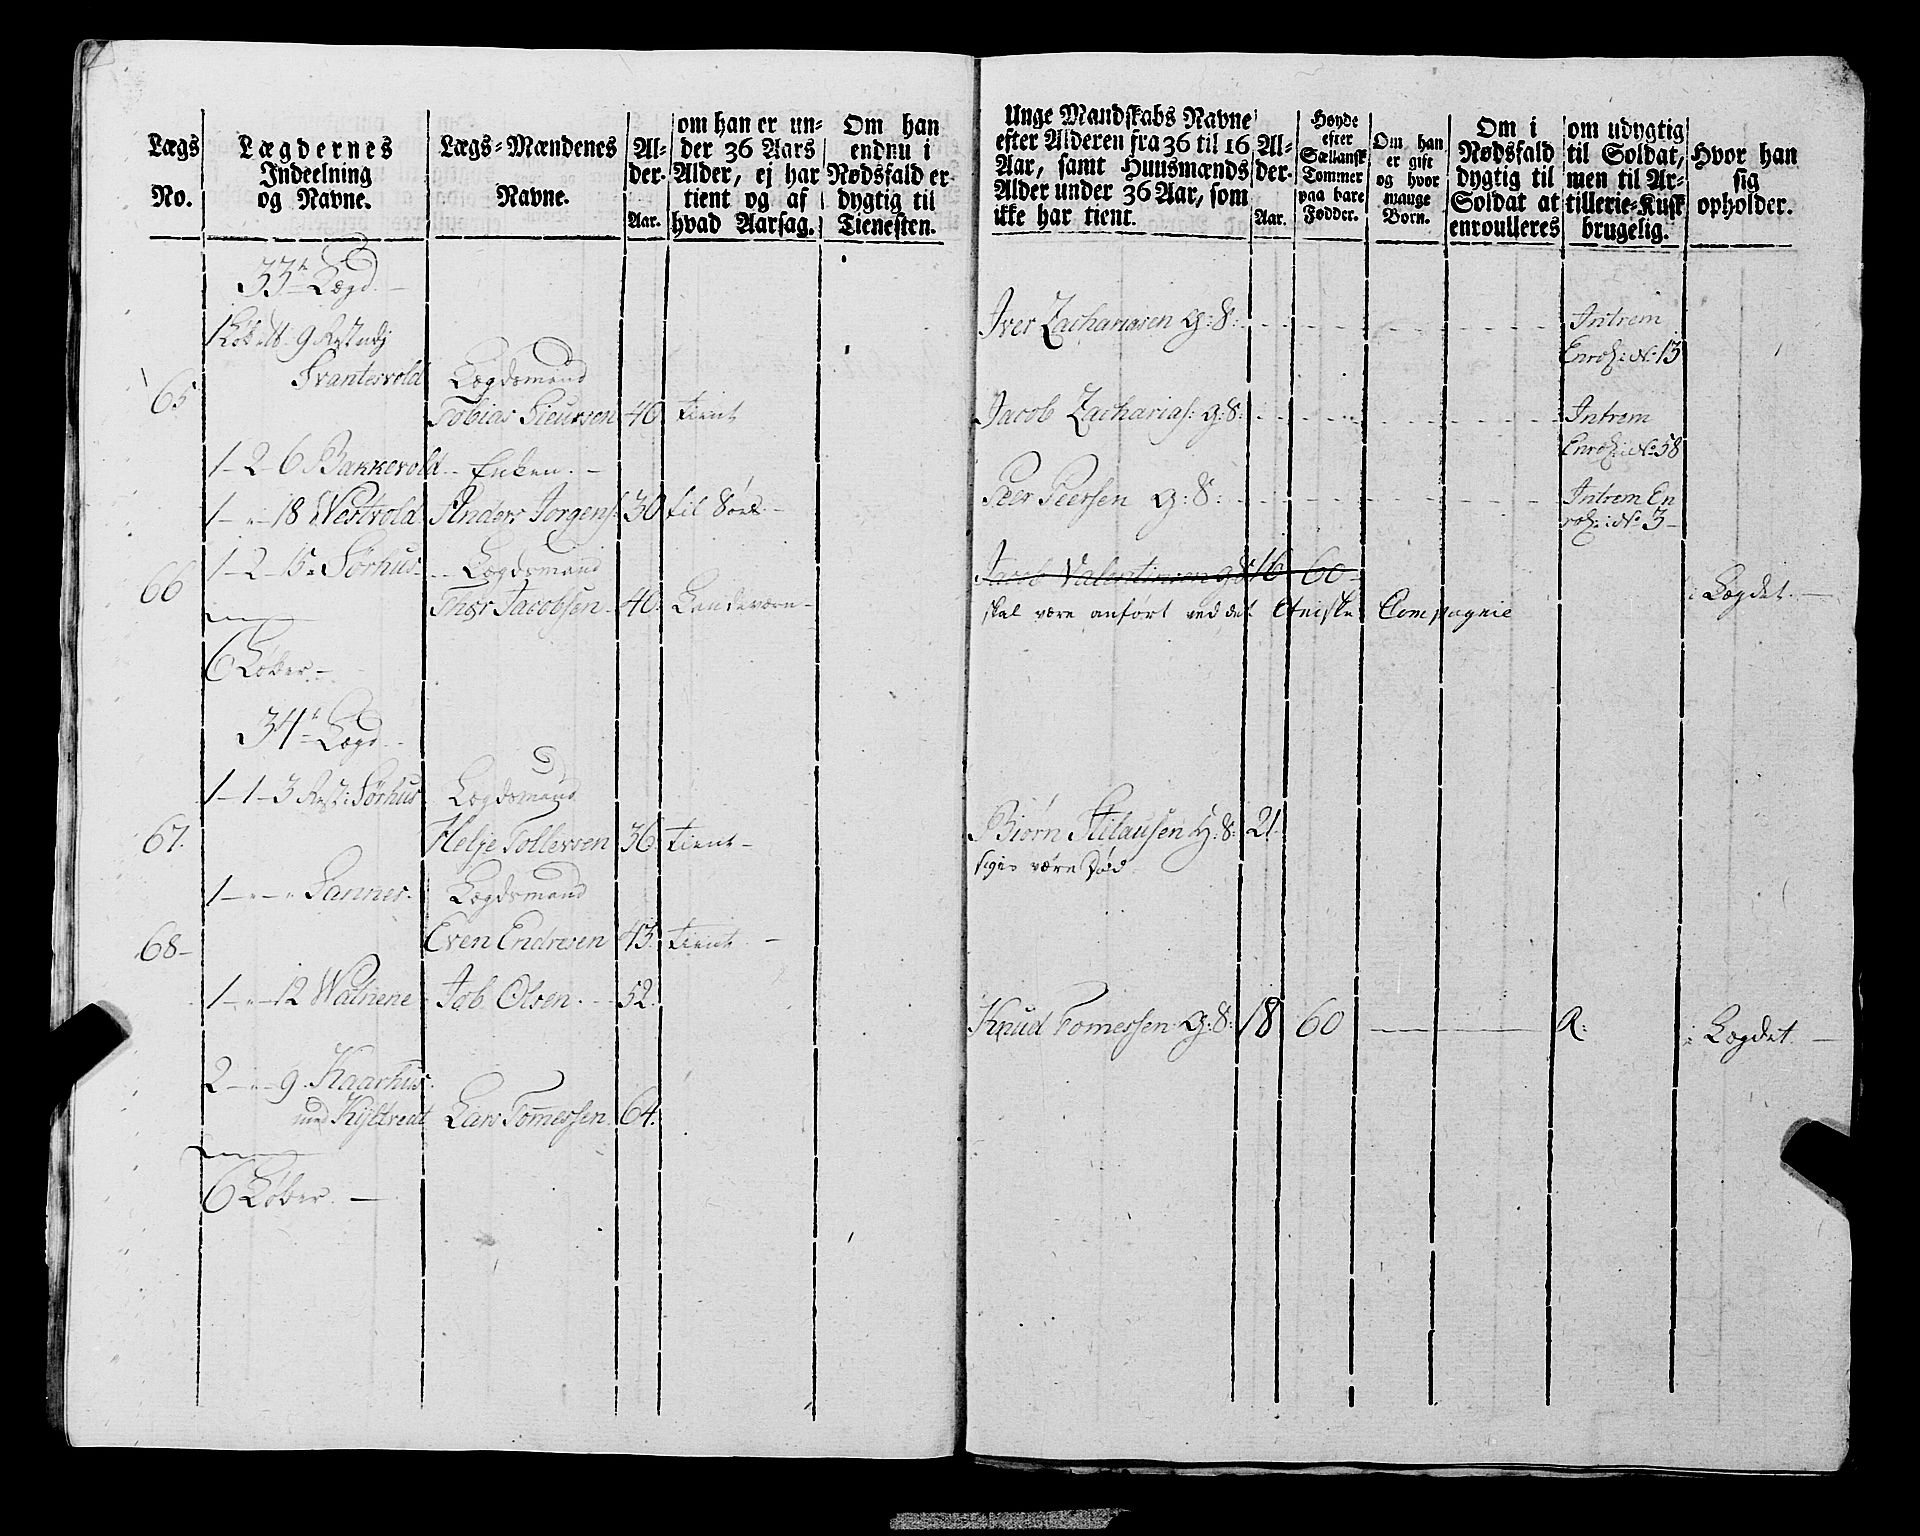 Lægs
No.
Lægdernes
Indeelning
og Navne.
Lægs-Mændenes
Navne.
Al-
der.
Aar.
om han er un-
der 36 Aars
Alder, ej har
tient og af
hvad Aarsag.
Om han
endnu i
Nødsfald er
dygtig til
Tienesten.
33te Lægd.
1 Løb 2 9 Rest udj
Svantesvold Lægdsmand
65 Tobias Sieursen 40. tient
1-2-6 Bakkevold Enken.
1-"-18 Westvold Anders Jorgens: 30 til Søes
1-2-15 Sørhus Lægdsmand
66 Thor Jacobsen 40. Landeværn
6 Løber
34te Lægd
1-1-3 Rest: Sørhus Lægdsmand
67. Helje Tollevsen 36. tient
1-"-" Sannes. Lægdsmand
68 Even Endresen 43. tient
1-"-12 Watnene Job Olsen. 52.
2-"-9. Kaarhus
med Kystvedt Lars Tomessen. 64.
6 Løber.
Unge Mandskabs Navne
efter Alderen fra 36 til 16
Aar, samt Huusmænds
Alder under 36 Aar, som
ikke har tient.
Al-
der.
Aar.
Høyde
efter
Sællansk
Tommer
paa bare
Fødder.
Om han
er gift
og hvor
mange
Børn.
Om i
Nødsfald
dygtig til
Soldat at
enroulleres
om udygtig
til Soldat,
men til Ar-
tillerie-Kusk
brugelig.
Hvor han
sig
opholder.
Iver Zachariasen G:S: Intrem
Enrol: No. 13
Jacob Zacharias: g:S: Intrem
Enrol: No. 58
Peer Peersen g:S: Intrem En
rol: No. 3
Jacob Valentinsen g S 16 60
i Lægdet.
skal være anført ved det Compagnie
Biørn Stilausen H:S: 21.
siges være Død
Knud Tomessen g:S: 18 60 A: i Lægdet